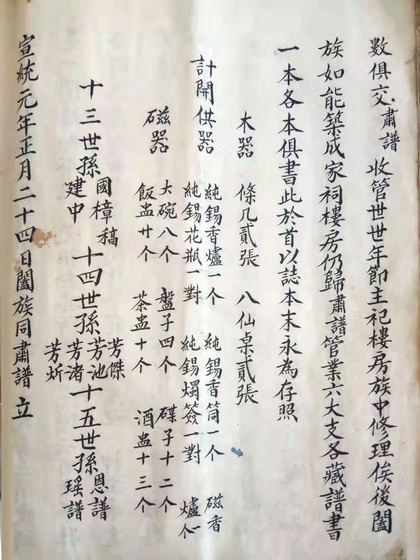 數俱交肅譜收管世世年節主祀樓房族中修理俟後闔
族如能築成家祠樓房仍歸肅譜管業六大支各藏譜書
一本各本俱書此於首以誌本末永為存照
木器 條几貳張 八仙桌貳張
計開供器 純錫香爐一个 純錫香筒一个 磁香爐一个
純錫花瓶一對 純錫燭簽一對
磁器 大碗八个 盤子四个 碟子十二个
飯盅廿个 茶盅十个 酒盅十三个
十三世孫 國樟 稿 建中 十四世孫 芳傑 芳池 芳渚 芳炘 十五世孫 恩譜 瑤譜
宣統元年正月二十四日闔族同肅譜立